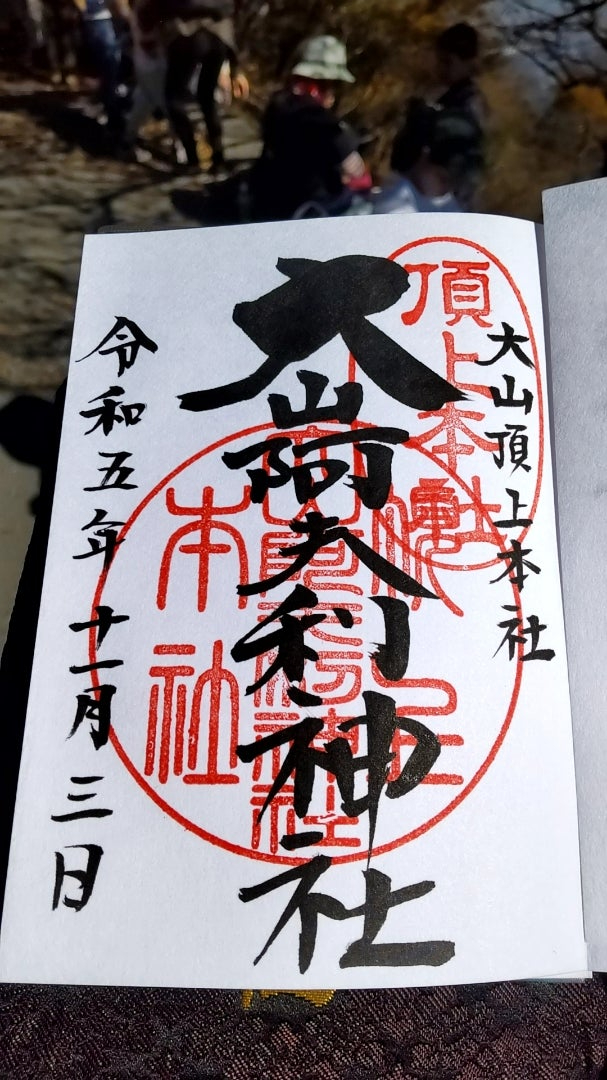 大山頂上本社
頂上本社
大山阿夫利神社
頂上
大山阿夫利神社
本社
令和五年十一月三日